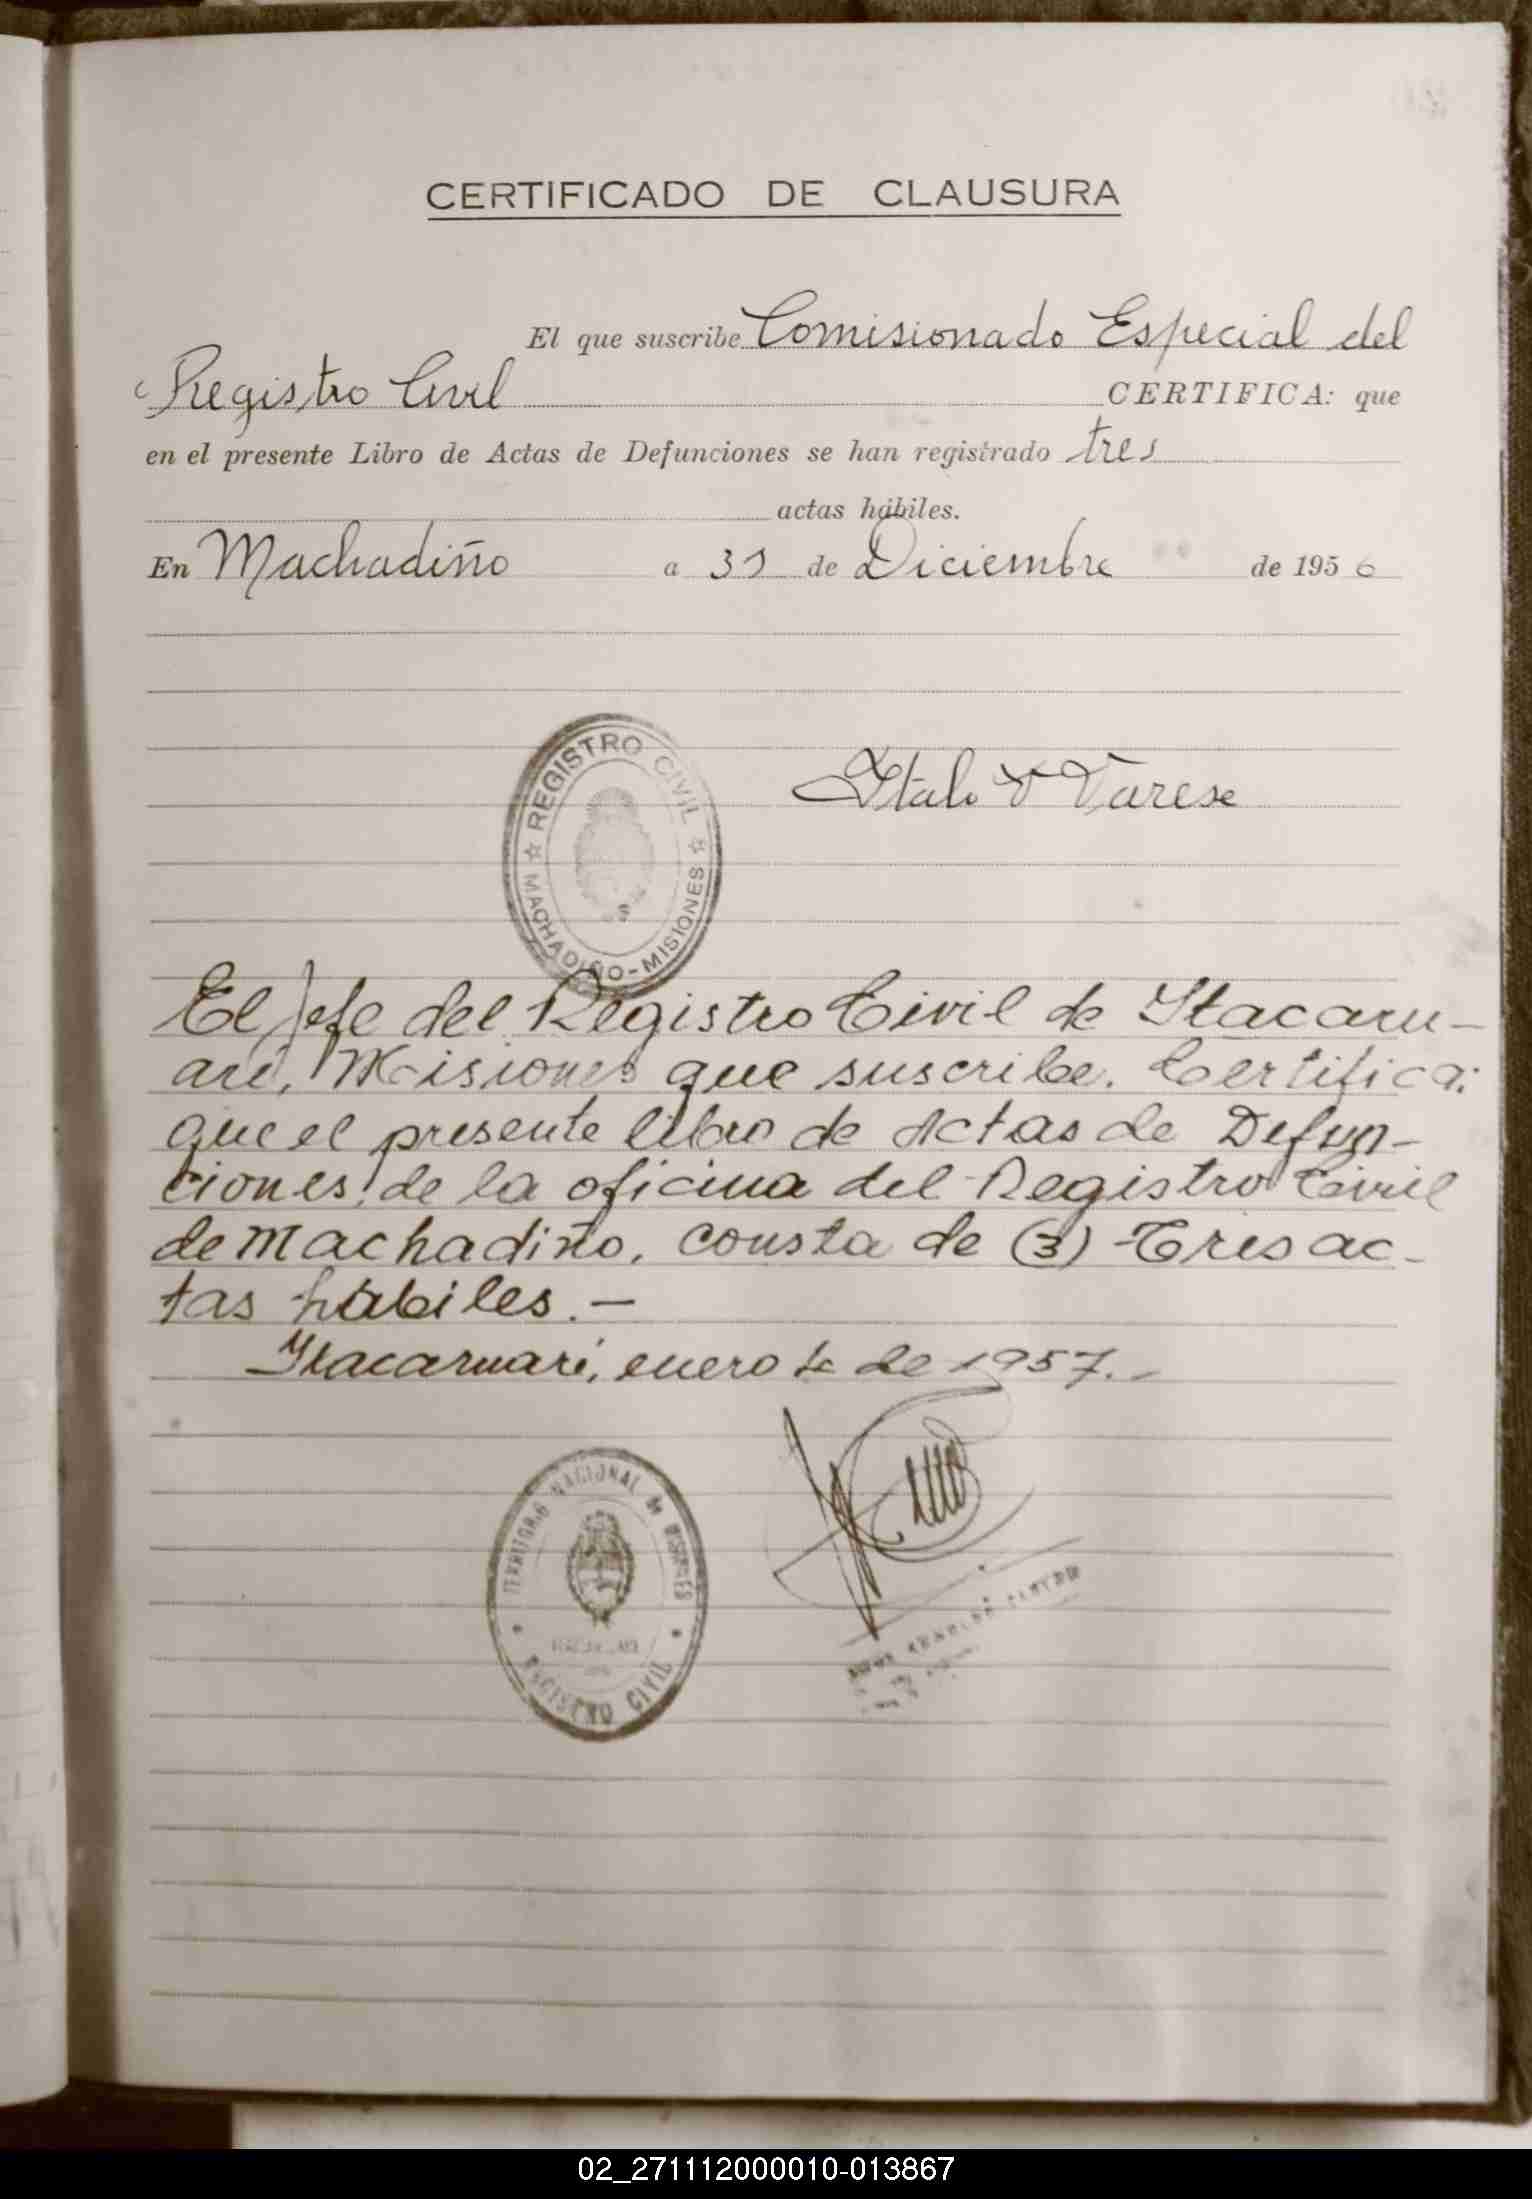 CERTIFICADO DE CLAUSURA
El que suscribe Comisionado Especial del
Registro Civil CERTIFICA: que
en el presente Libro de Actas de Defunciones se han registrado tres
actas hábiles.
En Machadiño a 31 de Diciembre de 1956
Italo V Varese
REGISTRO CIVIL
MACHADIÑO-MISIONES
El Jefe del Registro Civil de Itacaru-
aré, Misiones que suscribe. Certifica:
que el presente libro de Actas de Defun-
ciones, de la oficina del Registro Civil
de Machadiño, consta de (3) Tres ac-
tas hábiles.—
Itacaruaré, enero de 1957.-
TERRITORIO NACIONAL de MISIONES
REGISTRO CIVIL
02_271112000010-013867